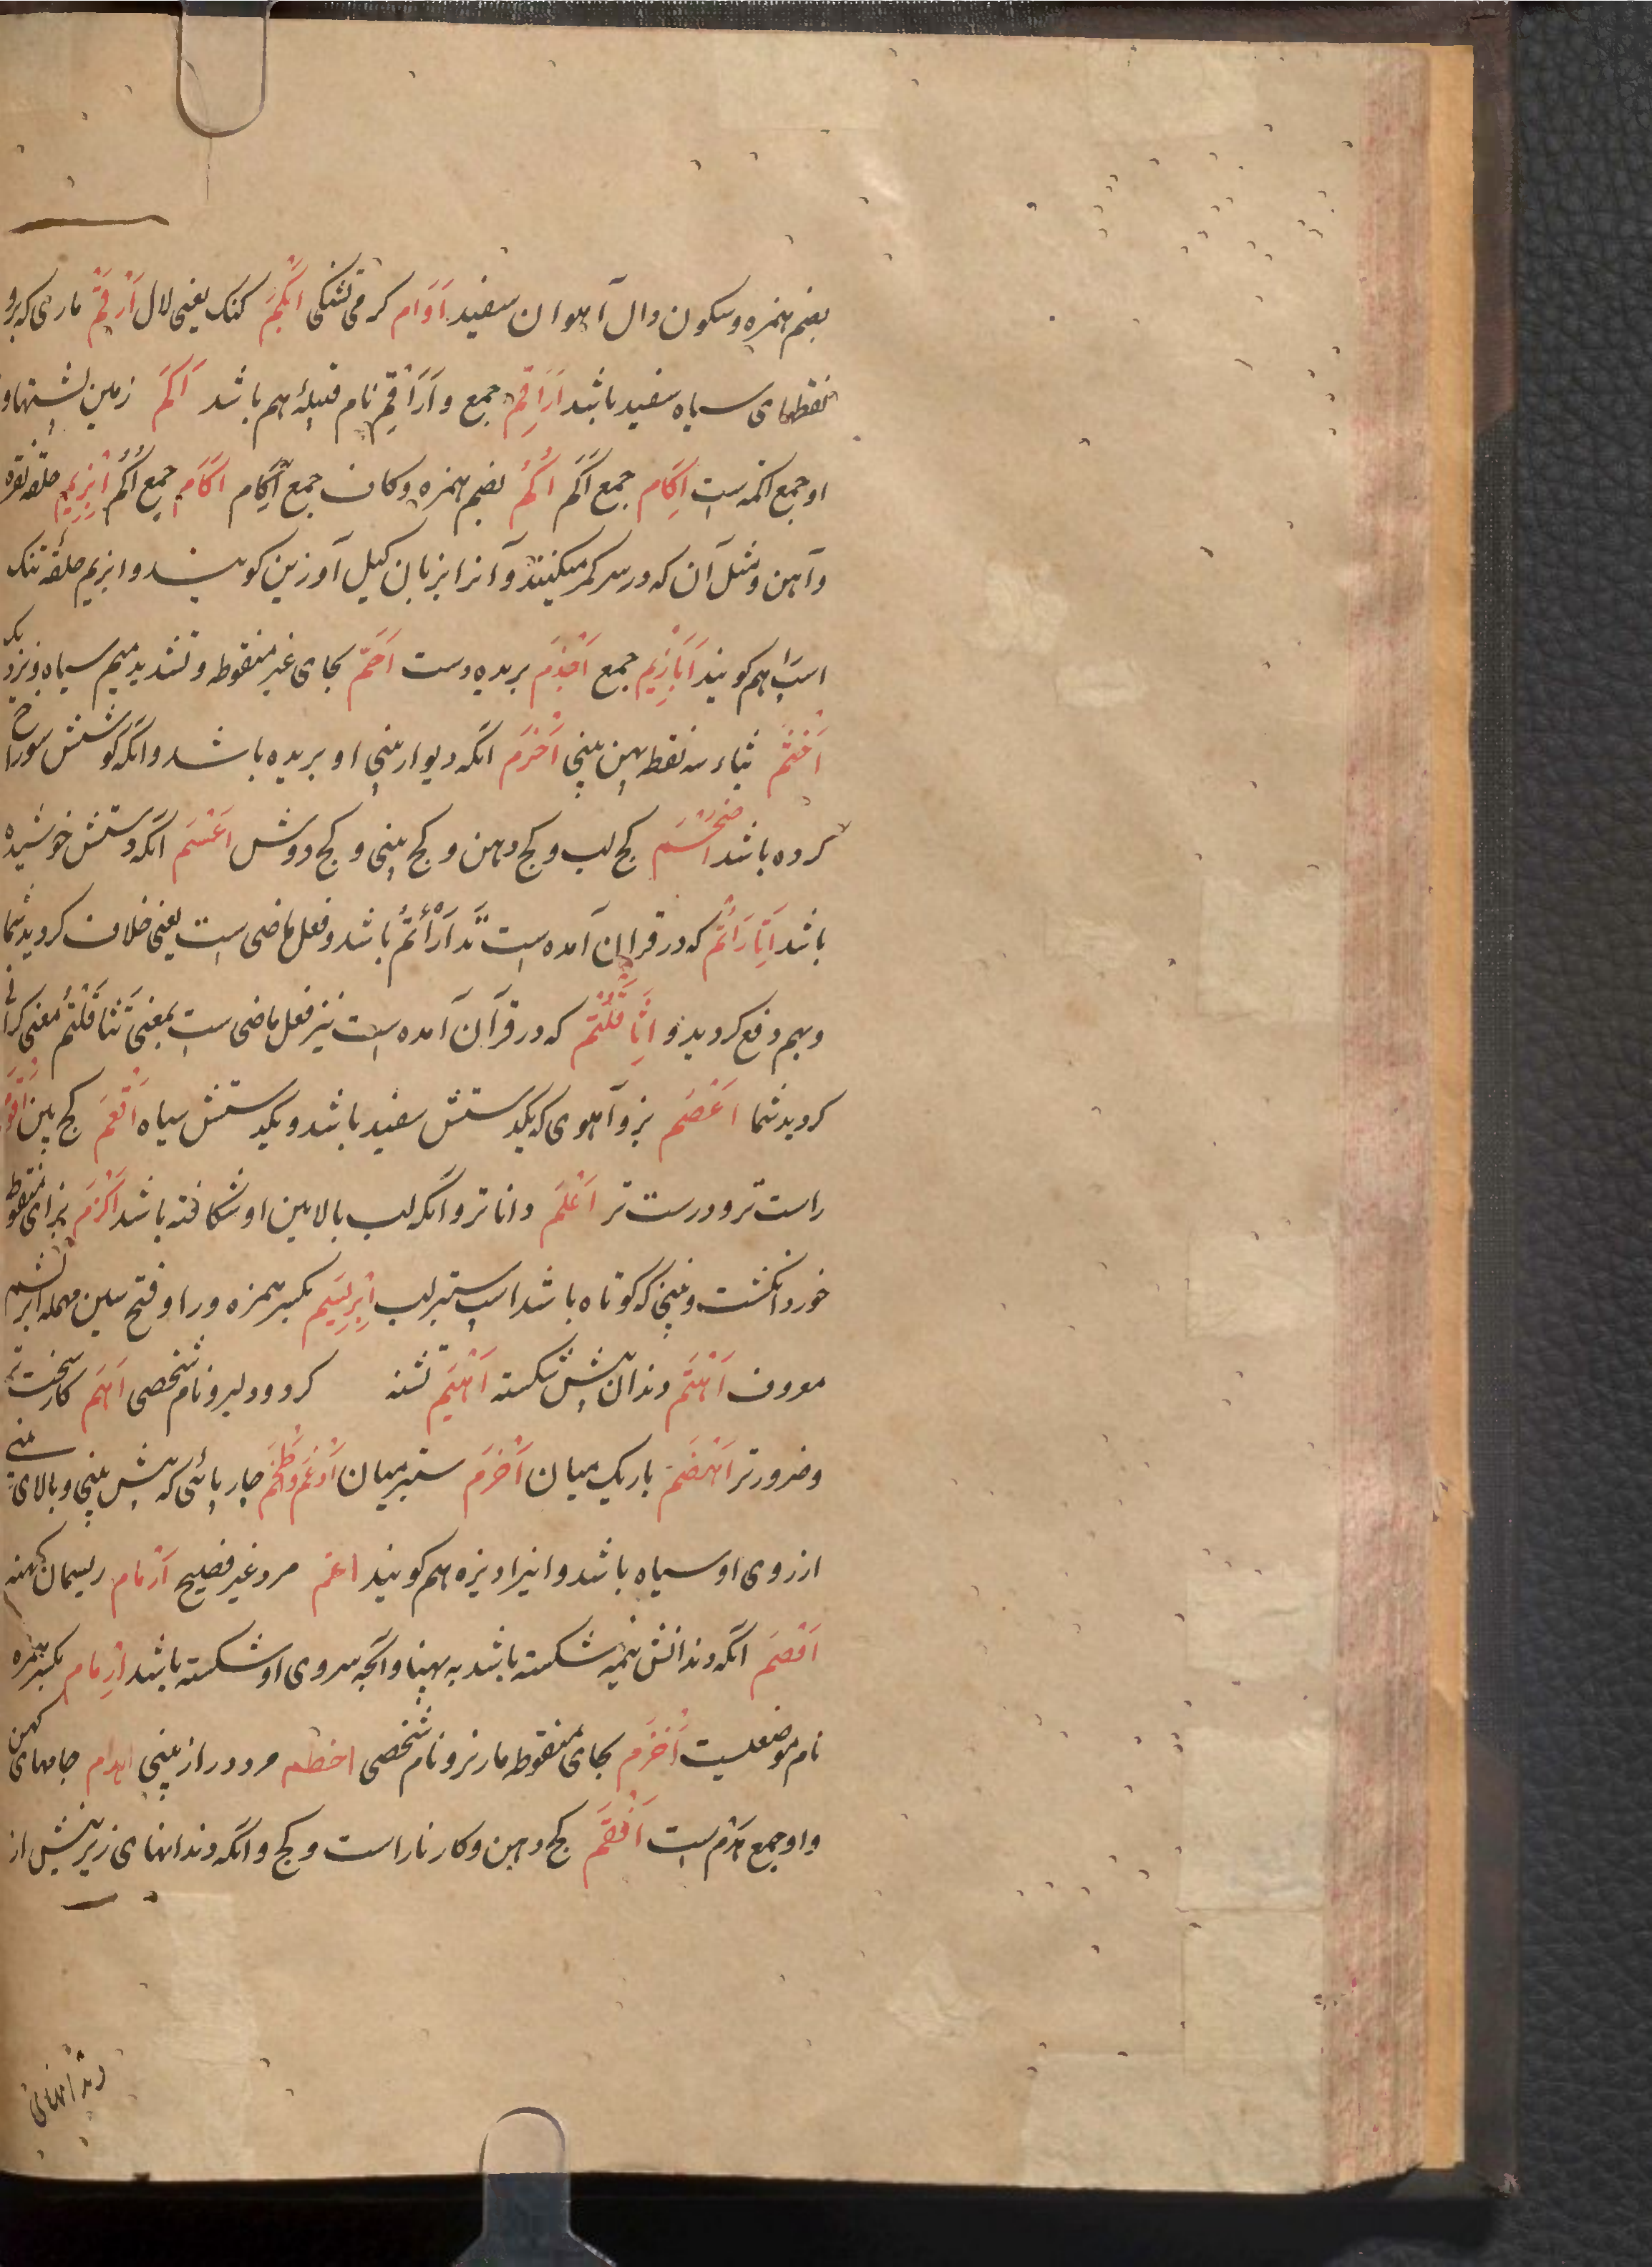 بضم همزه و سکون دال آهوان سفید اُوَام گرمی تشنگی اَبْکَمْ کنک یعنی لال اَرْقَمْ ماری که برو
نقطهای سیاه سفید باشد اَرَاقِمْ جمع و اَرَاقِمْ نام قبیلهٔ هم باشد اَکَمْ زمین پشتها و
او جمع اکمه است اِکَام جمع اَکَم اُکُمْ بضم همزه و کاف جمع اِکَام اکَام جمع اُکُم اِبْزِیم حلقه نقره
و آهن و مثل آن که در سر کمر میکنند و آنرا بزبان کیل آورزین کویند و ابزیم حلقه تنک
اسب را هم کویند اَبَازِیم جمع اَجْذَم بریده دست اَحَمّ بحای غیر منقوطه و تشدید میم سیاه و نزدیک
اَخْثَم بثاء سه نقطه پهن بینی اَخْرَم انکه دیوار بینی او بریده باشد و انکه کوشش سوراخ
کرده باشد اَضْجَم کج لب و کج دهن و کج بینی و کج دوش اَعْسَم انکه دستش خوشیده
باشد اِدَّارَأتُم که در قران آمده است تَدَارَأْتُم باشد و فعل ماضی است یعنی خلاف کردید شما
و بهم دفع کردید و اِثَّاقَلْتُم که در قرآن آمده است نیز فعل ماضی است بمعنی تَثَاقَلْتُم معنی کرانی
کردید شما اَعْصَم بز و آهوی که یکدستش سفید باشد و یکدستش سیاه اَقْعَم کج بین اَقْوَم
راست تر و درست تر اَعْلَم دانا تر و انکه لب بالایین او شکافته باشد اَکْزَم بزای منقوطه
خورد انکشت و بینی که کوتاه باشد اسب ستبر لب اِبْرِیسَم بکسر همزه و را و فتح سین مهمله ابریشم
معروف اَهْتَم دندان پیش شکسته اَهْیَم تشنه کرد و دلیر و نام شخصی اَهَم کار سخت تر
و ضرور تر اَهْضَم باریک میان اَخْرَم ستبر میان اَدْغَم چارپائی که پیش بینی و بالای
از روی او سیاه باشد و انرا دیزه هم کویند اعجم مرد غیر فصیح اَرْمَام ریسمان کهنه
اَقْصَم انکه دندانش نیمه شکسته باشد به پهنا و انچه سروی او شکسته باشد اِرْمَام بکسر همزه
نام موضعیست اَخْزَم بخای منقوطه مار نر و نام شخصی اخطم مرد دراز بینی اهدام جامهای کهن
و او جمع هدم است اَفْقَم کج دهن و کار ناراست و کج و انکه دندانهای زیر پیش از
دندانهای